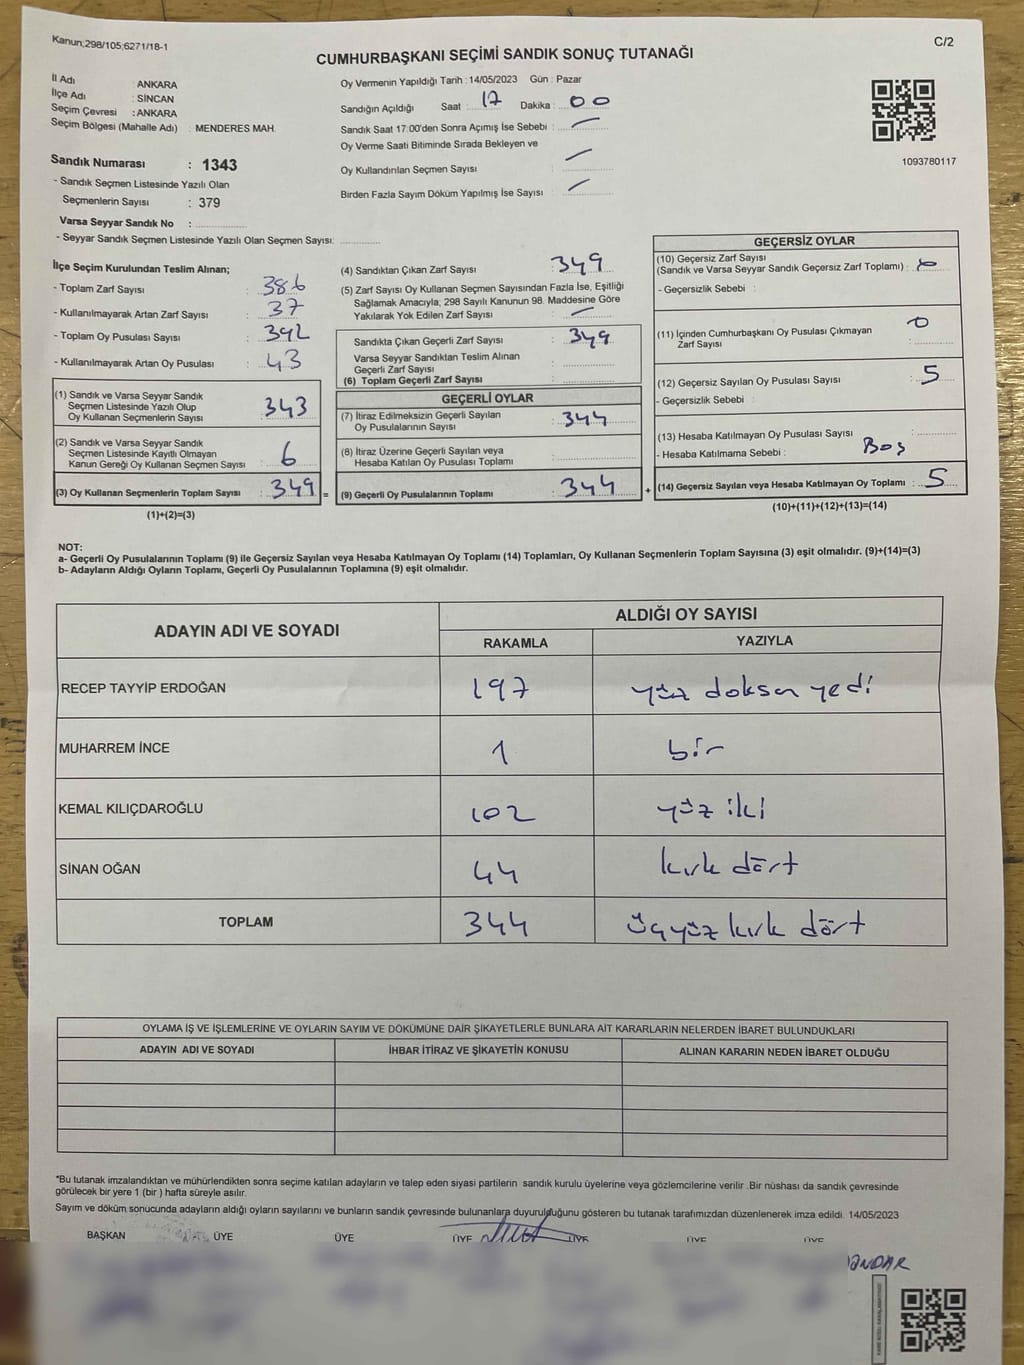 Kanun;298/105;6271/18-1
C/2
CUMHURBAŞKANI SEÇİMİ SANDIK SONUÇ TUTANAĞI
İl Adı : ANKARA
İlçe Adı : SİNCAN
Seçim Çevresi : ANKARA
Seçim Bölgesi (Mahalle Adı) : MENDERES MAH.
Sandık Numarası : 1343
- Sandık Seçmen Listesinde Yazılı Olan
Seçmenlerin Sayısı : 379
Varsa Seyyar Sandık No :
- Seyyar Sandık Seçmen Listesinde Yazılı Olan Seçmen Sayısı:
Oy Vermenin Yapıldığı Tarih : 14/05/2023 Gün : Pazar
Sandığın Açıldığı Saat : 17 Dakika : 00
Sandık Saat 17:00'den Sonra Açımış İse Sebebi : —
Oy Verme Saati Bitiminde Sırada Bekleyen ve
Oy Kullandırılan Seçmen Sayısı : —
Birden Fazla Sayım Döküm Yapılmış İse Sayısı : —
1093780117
İlçe Seçim Kurulundan Teslim Alınan;
- Toplam Zarf Sayısı : 386
- Kullanılmayarak Artan Zarf Sayısı : 37
- Toplam Oy Pusulası Sayısı : 392
- Kullanılmayarak Artan Oy Pusulası : 43
(1) Sandık ve Varsa Seyyar Sandık
Seçmen Listesinde Yazılı Olup
Oy Kullanan Seçmenlerin Sayısı : 343
(2) Sandık ve Varsa Seyyar Sandık
Seçmen Listesinde Kayıtlı Olmayan
Kanun Gereği Oy Kullanan Seçmen Sayısı : 6
(3) Oy Kullanan Seçmenlerin Toplam Sayısı : 349 =
(1)+(2)=(3)
(4) Sandıktan Çıkan Zarf Sayısı : 349
(5) Zarf Sayısı Oy Kullanan Seçmen Sayısından Fazla İse, Eşitliği
Sağlamak Amacıyla; 298 Sayılı Kanunun 98. Maddesine Göre
Yakılarak Yok Edilen Zarf Sayısı : —
Sandıkta Çıkan Geçerli Zarf Sayısı : 349
Varsa Seyyar Sandıktan Teslim Alınan
Geçerli Zarf Sayısı :
(6) Toplam Geçerli Zarf Sayısı :
GEÇERLİ OYLAR
(7) İtiraz Edilmeksizin Geçerli Sayılan
Oy Pusulalarının Sayısı : 344
(8) İtiraz Üzerine Geçerli Sayılan veya
Hesaba Katılan Oy Pusulası Toplamı :
(9) Geçerli Oy Pusulalarının Toplamı : 344 +
GEÇERSİZ OYLAR
(10) Geçersiz Zarf Sayısı
(Sandık ve Varsa Seyyar Sandık Geçersiz Zarf Toplamı) : 0
- Geçersizlik Sebebi :
(11) İçinden Cumhurbaşkanı Oy Pusulası Çıkmayan
Zarf Sayısı : 0
(12) Geçersiz Sayılan Oy Pusulası Sayısı : 5
- Geçersizlik Sebebi :
(13) Hesaba Katılmayan Oy Pusulası Sayısı :
- Hesaba Katılmama Sebebi : Boş
(14) Geçersiz Sayılan veya Hesaba Katılmayan Oy Toplamı : 5
(10)+(11)+(12)+(13)=(14)
NOT:
a- Geçerli Oy Pusulalarının Toplamı (9) ile Geçersiz Sayılan veya Hesaba Katılmayan Oy Toplamı (14) Toplamları, Oy Kullanan Seçmenlerin Toplam Sayısına (3) eşit olmalıdır. (9)+(14)=(3)
b- Adayların Aldığı Oyların Toplamı, Geçerli Oy Pusulalarının Toplamına (9) eşit olmalıdır.
ADAYIN ADI VE SOYADI ALDIĞI OY SAYISI
RAKAMLA YAZIYLA
RECEP TAYYİP ERDOĞAN 197 yüz doksan yedi
MUHARREM İNCE 1 bir
KEMAL KILIÇDAROĞLU 102 yüz iki
SİNAN OĞAN 44 kırk dört
TOPLAM 344 üçyüz kırk dört
OYLAMA İŞ VE İŞLEMLERİNE VE OYLARIN SAYIM VE DÖKÜMÜNE DAİR ŞİKAYETLERLE BUNLARA AİT KARARLARIN NELERDEN İBARET BULUNDUKLARI
ADAYIN ADI VE SOYADI İHBAR İTİRAZ VE ŞİKAYETİN KONUSU ALINAN KARARIN NEDEN İBARET OLDUĞU
*Bu tutanak imzalandıktan ve mühürlendikten sonra seçime katılan adayların ve talep eden siyasi partilerin sandık kurulu üyelerine veya gözlemcilerine verilir .Bir nüshası da sandık çevresinde
görülecek bir yere 1 (bir ) hafta süreyle asılır.
Sayım ve döküm sonucunda adayların aldığı oyların sayılarını ve bunların sandık çevresinde bulunanlara duyurulduğunu gösteren bu tutanak tarafımızdan düzenlenerek imza edildi. 14/05/2023
BAŞKAN ÜYE ÜYE ÜYE ÜYE ÜYE ÜYE